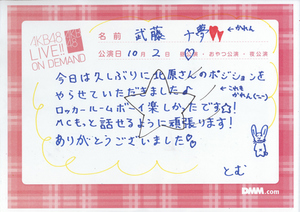 AKB48 LIVE!! ON DEMAND
AKB48
名前 武藤 十夢 ←かれん
公演日 10月2日 昼公演・おやつ公演・夜公演
今日は久しぶりに北原さんのポジションを
やらせていただきました♪
←これもかれん(^-^)
ロッカールームボーイ楽しかったです☆!
MCもっと話せるように頑張ります!
ありがとうございました
とむ
DMM.com